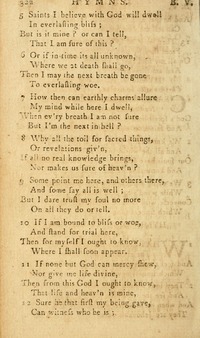 322 HYMNS. B. V.
5 Saints I believe with God will dwell
In everlasting bliss ;
But is it mine ? or can I tell,
That I am sure of this ?
6 Or if in time its all unknown,
Where we at death shall go,
Then I may the next breath be gone
To everlasting woe.
7 How then can earthly charms allure
My mind while here I dwell,
When ev'ry breath I am not sure
But I'm the next in hell ?
8 Why all the toil for sacred things,
Or revelations giv'n,
If all no real knowledge brings,
Nor makes us sure of heav'n ?
9 Some point me here, and others there,
And some say all is well ;
But I dare trust my soul no more
On all they do or tell.
10 If I am bound to bliss or woe,
And stand for trial here,
Then for myself I ought to know,
Where I shall soon appear.
11 If none but God can mercy shew,
Nor give me life divine,
Then from this God I ought to know,
That life and heav'n is mine,
12 Sure he that first my being gave,
Can witness who he is ;